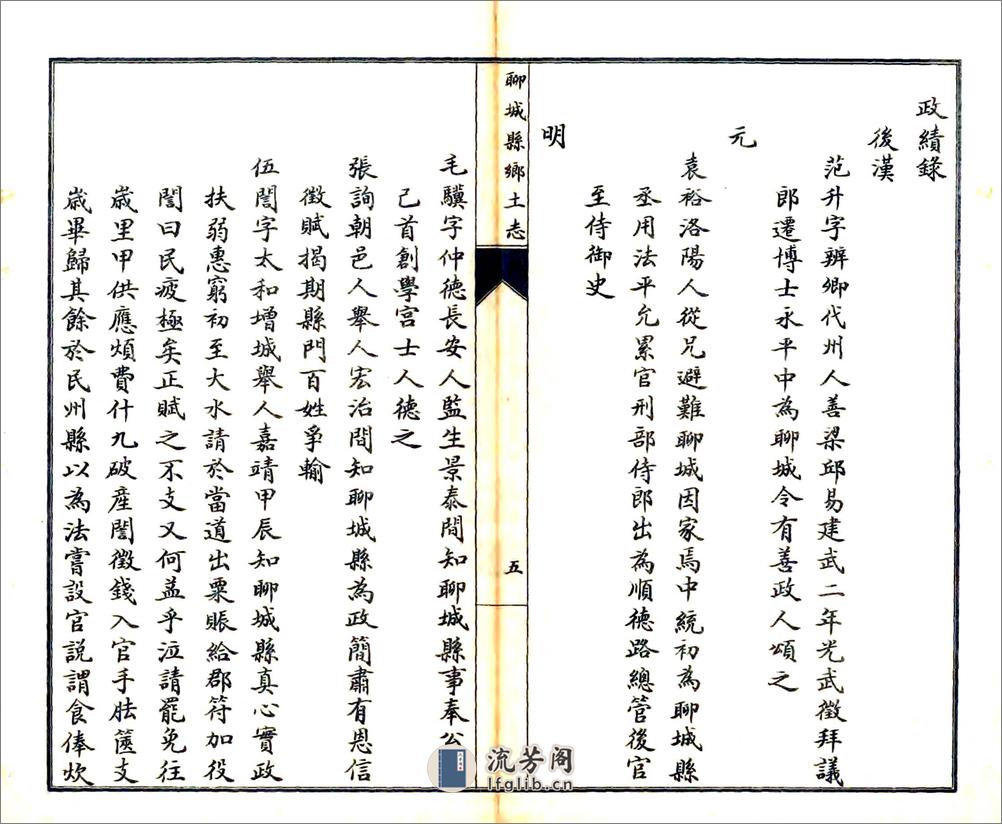 政績錄
後漢
范升字辨卿代州人善梁邱易建武二年光武徵拜議
郎遷博士永平中為聊城令有善政人頌之
元
袁裕洛陽人從兄避難聊城因家焉中統初為聊城縣
丞用法平允累官刑部侍郎出為順德路總管後官
至侍御史
明
聊城縣鄉土志
五
毛驥字仲德長安人監生景泰間知聊城縣事奉公
己首創學宮士人德之
張詢朝邑人舉人宏治間知聊城縣為政簡肅有恩信
徵賦揭期縣門百姓爭輸
伍誾字太和增城舉人嘉靖甲辰知聊城縣真心實政
扶弱惠窮初至大水請於當道出粟賑給郡符加役
誾曰民疲極矣正賦之不支又何益乎泣請罷免往
歲里甲供應煩費什九破産誾徵錢入官手胠篋支
歲畢歸其餘於民州縣以為法嘗設官説謂食俸炊
流芳阁
lfglib.cn